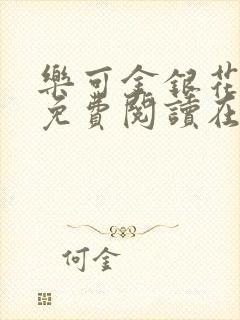 樂可金銀花
免費閱讀在
何金